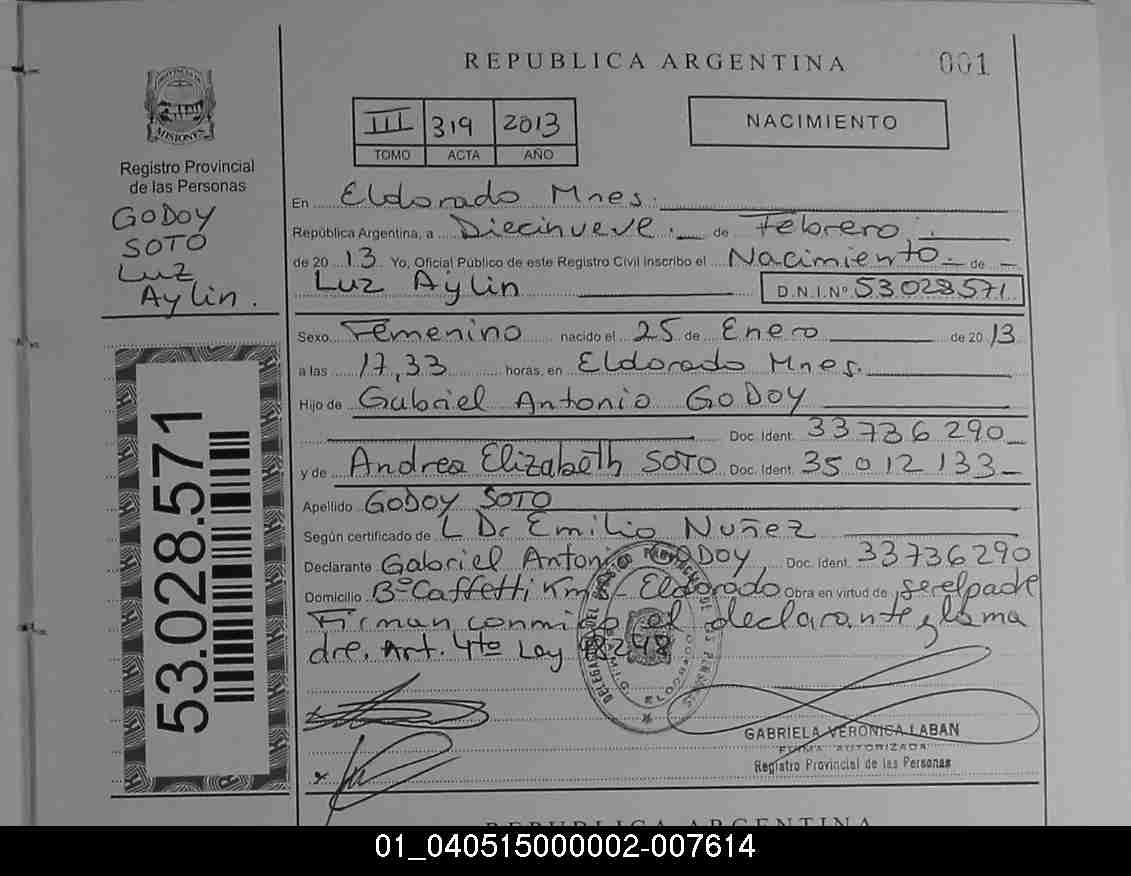 REPUBLICA ARGENTINA
001
PROVINCIA DE
MISIONES
Registro Provincial
de las Personas
GODOY
SOTO
LUZ
Aylin.
53.028.571
III 319 2013
TOMO ACTA AÑO
NACIMIENTO
En Eldorado Mnes.
República Argentina, a Diecinueve. de Febrero.
de 20 13 Yo, Oficial Público de este Registro Civil inscribo el Nacimiento de
Luz Aylin D.N.I.Nº 53028571
Sexo Femenino nacido el 25 de Enero de 20 13
a las 17,33 horas, en Eldorado Mnes.
Hijo de Gabriel Antonio GODOY
Doc. Ident. 33736290
y de Andrea Elizabeth SOTO Doc. Ident. 35012133
Apellido GODOY SOTO
Según certificado de L Dr Emilio Nuñez
Declarante Gabriel Antonio GODOY Doc. Ident. 33736290
Domicilio Bº Caffetti Km 8 - Eldorado Obra en virtud de ser el padre
Firman conmigo el declarante y la ma
dre. Art. 4to Ley 18248
GABRIELA VERONICA LABAN
FIRMA AUTORIZADA
Registro Provincial de las Personas
REPUBLICA ARGENTINA
01_040515000002-007614